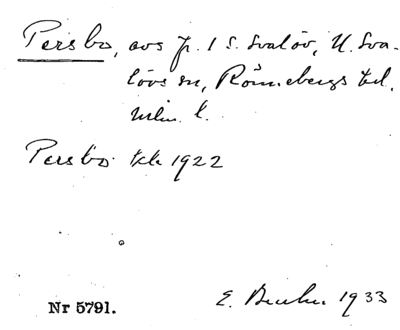 Persbo, avs fr. 1 S. Svalöv, N. Sva-
lövs sn, Rönnebergs hd.
Mlm. l.
Persbo tk 1922
Nr 5791.
E. 1933